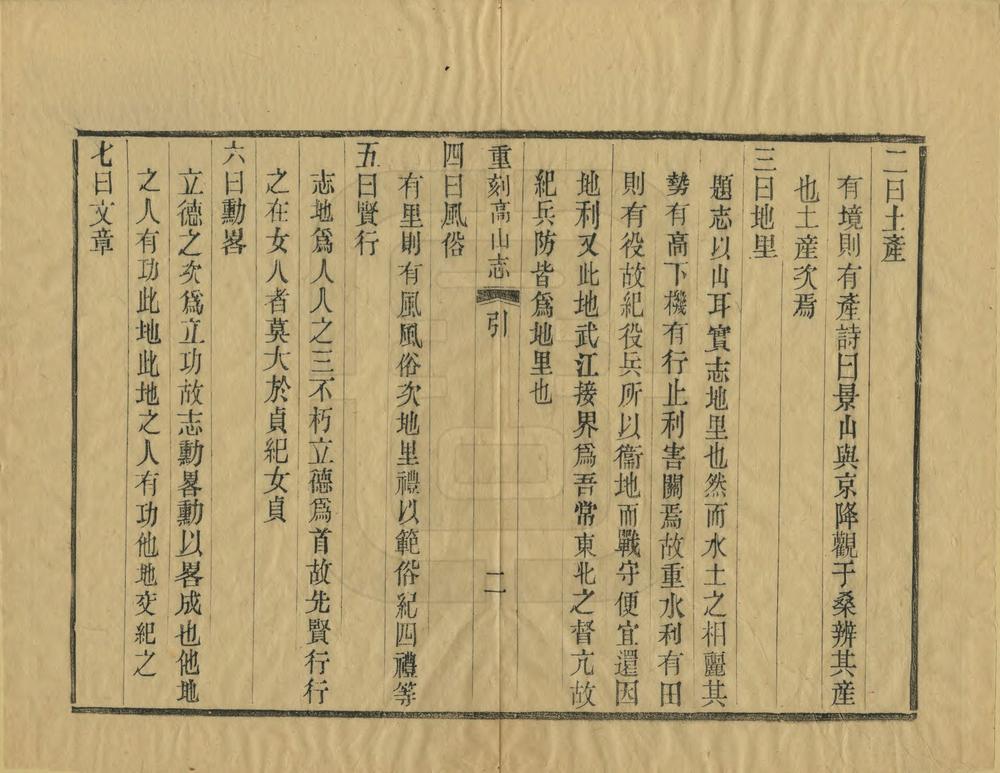 二曰土產
有境則有產詩曰景山與京降觀于桑辨其產
也土產次焉
三曰地里
題志以山耳實志地里也然而水土之相麗其
勢有高下機有行止利害關焉故重水利有田
則有役故紀役兵所以衞地而戰守便宜還因
地利又此地武江接界爲吾常東北之督亢故
紀兵防皆爲地里也
重刻高山志 引 二
四曰風俗
有里則有風風俗次地里禮以範俗紀四禮等
五曰賢行
志地爲人人之三不朽立德爲首故先賢行行
之在女人者莫大於貞紀女貞
六曰勳畧
立德之次爲立功故志勳畧勳以畧成也他地
之人有功此地此地之人有功他地交紀之
七曰文章